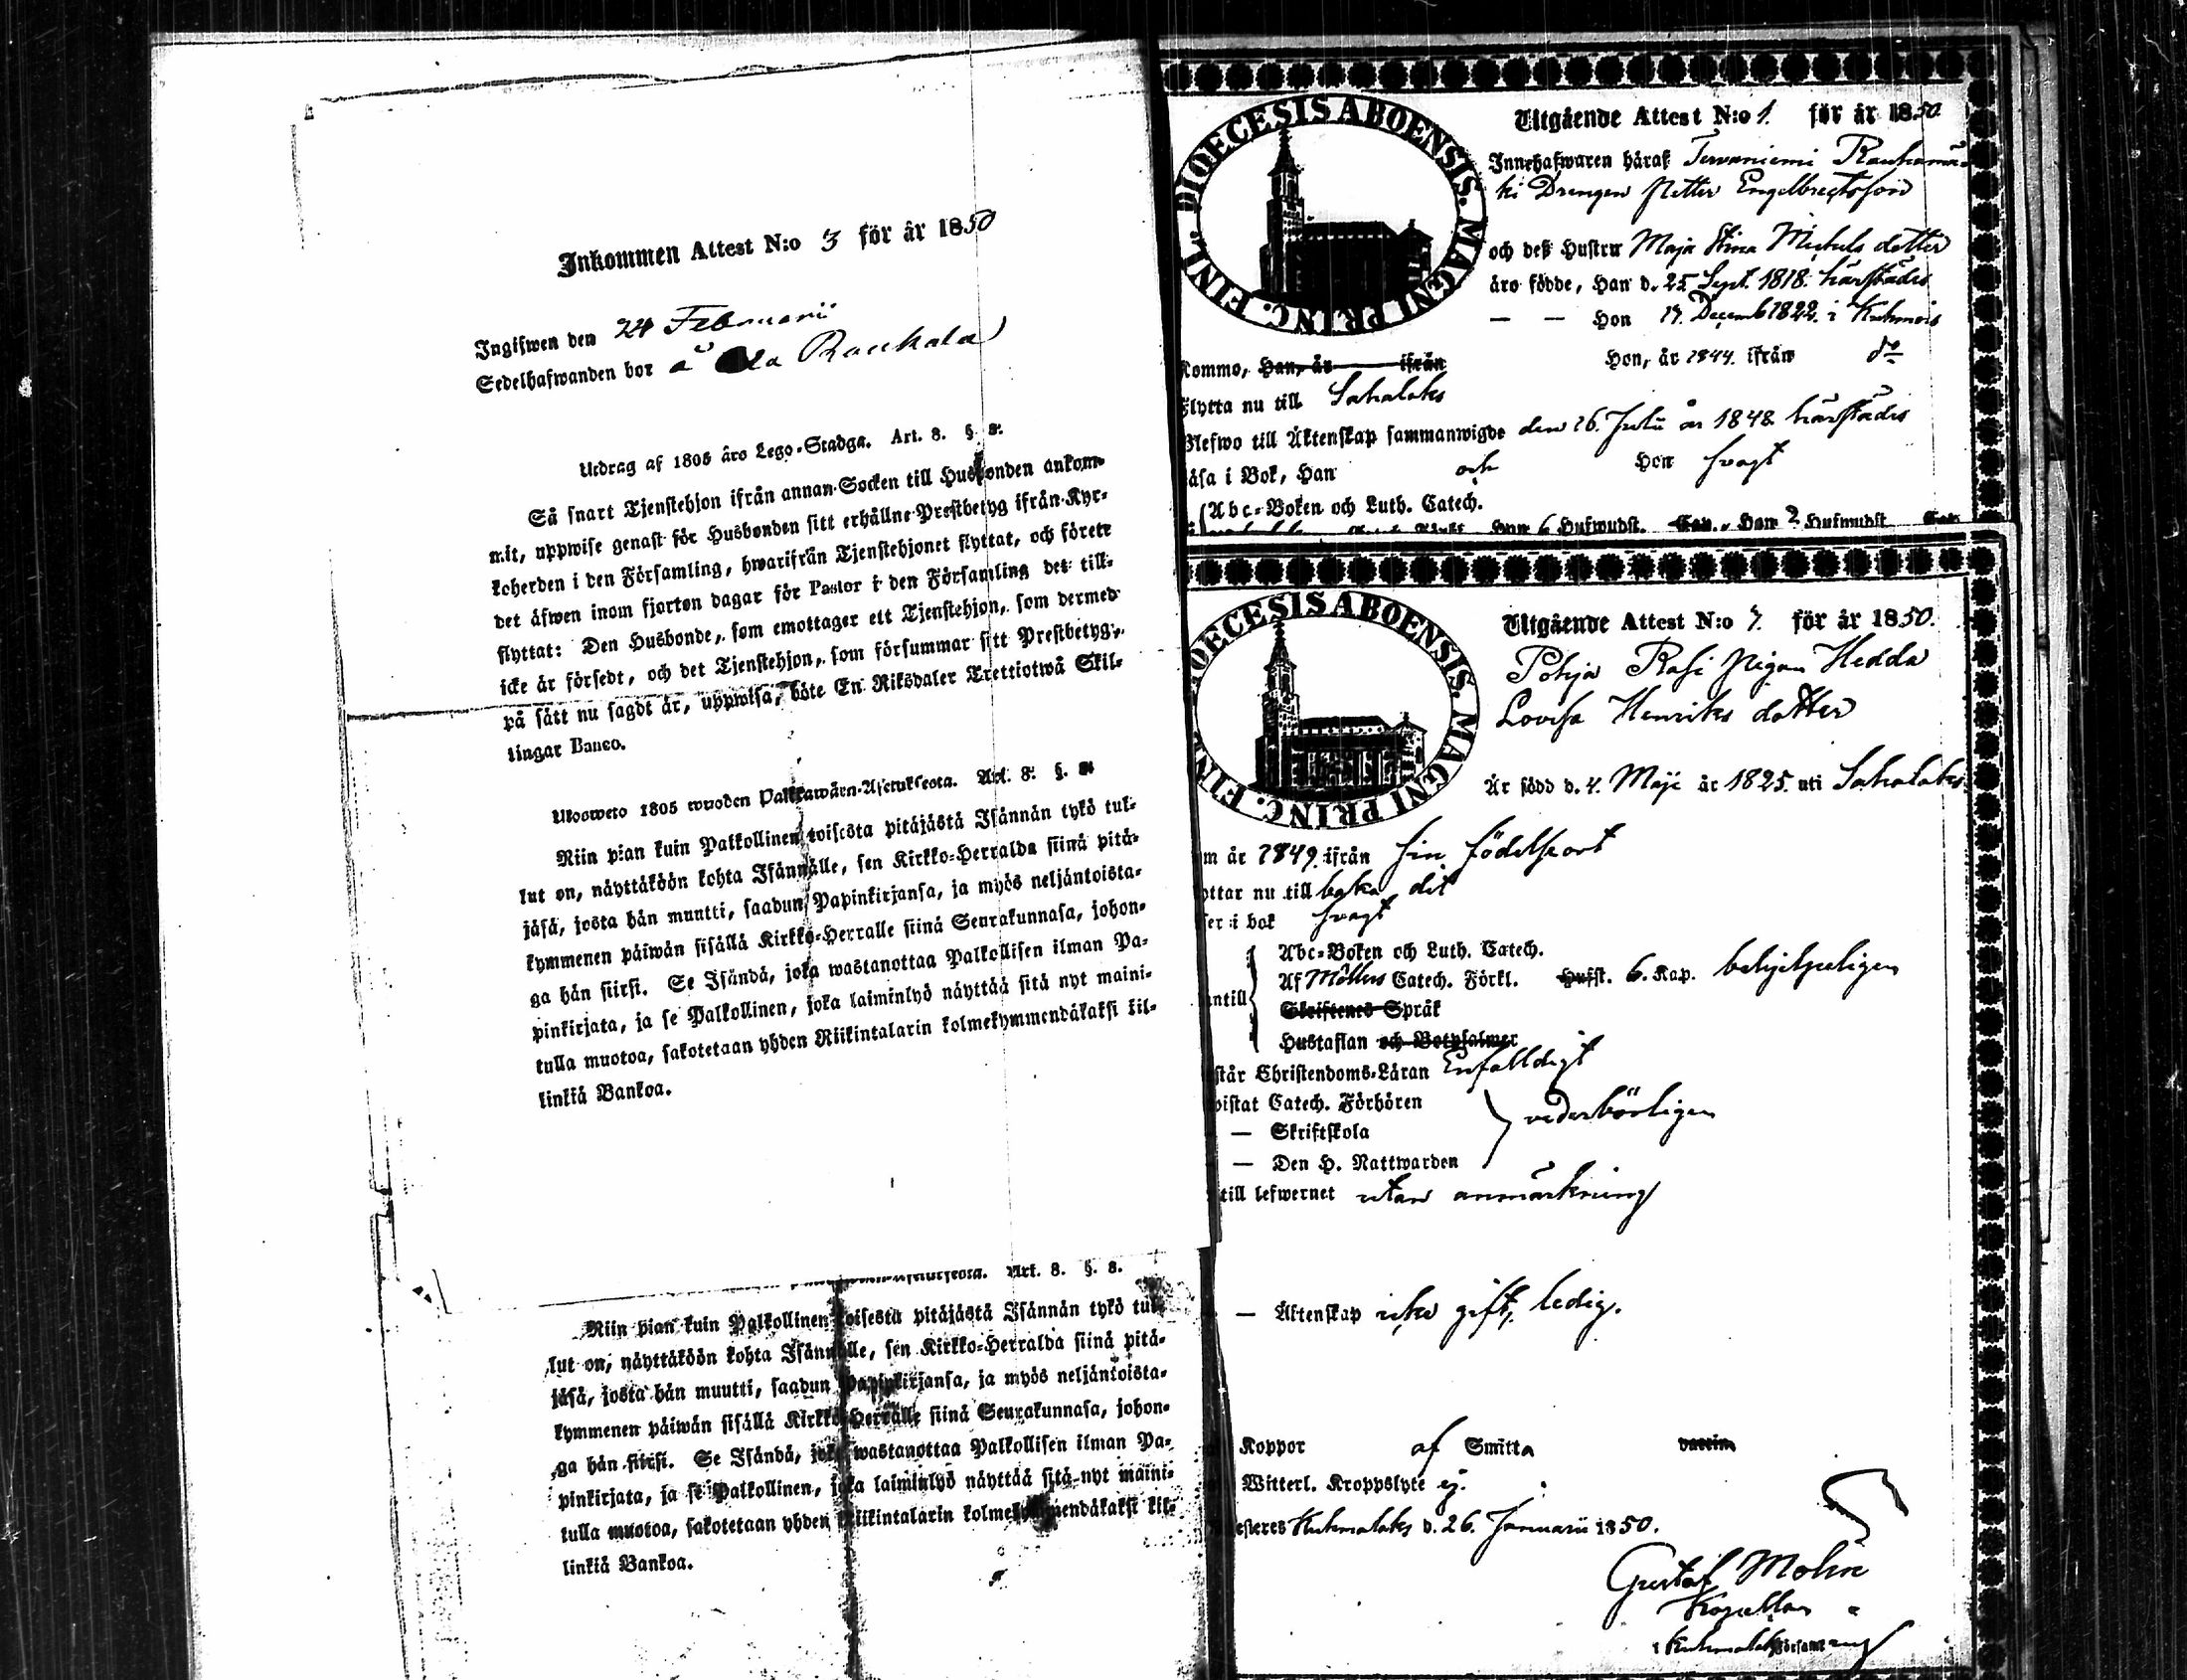 Inkommen Attest N:o 3 för år 1850
Ingifwen den 24 Februarii
Sedelhafwanden bor å Raukala
Utdrag af 1805 års Lego-Stadga. Art. 8. §. 8.
Så snart Tjenstehjon ifrån annan Socken till Husbonden ankom-
mit, uppwise genast för Husbonden sitt erhållne Prestbetyg ifrån Kyr-
koherden i den Församling, hwarifrån Tjenstehjonet flyttat, och förete
det äfwen inom fjorton dagar för Pastor i den Församling det till-
flyttat: Den Husbonde, som emottager ett Tjenstehjon, som dermed
icke är försedt, och det Tjenstehjon, som försummar sitt Prestbetyg,
på sätt nu sagdt är, uppwisa, böte En Riksdaler Trettiotwå Skil-
lingar Banco.
Ulosweto 1805 wuoden Palkkawäen-Asetuksesta. Art. 8. §. 8.
Niin pian kuin Palkollinen toisesta pitäjästä Isännän tykö tul-
lut on, näyttäköön kohta Isännälle, sen Kirkko-Herralda siinä pitä-
jäsä, josta hän muutti, saadun Papinkirjansa, ja myös neljäntoista-
kymmenen päiwän sisällä Kirkko-Herralle siinä Seurakunnasa, johon-
ga hän siirsi. Se Isändä, joka wastanottaa Palkollisen ilman Pa-
pinkirjata, ja se Palkollinen, joka laiminlyö näyttää sitä nyt maini-
tulla muotoa, sakotetaan yhden Riikintalarin kolmekymmendäkaksi kil-
linkiä Bankoa.
Art. 8. §. 8.
Niin pian kuin Palkollinen toisesta pitäjästä Isännän tykö tul-
lut on, näyttäköön kohta Isännälle, sen Kirkko-Herralda siinä pitä-
jäsä, josta hän muutti, saadun Papinkirjansa, ja myös neljäntoista-
kymmenen päiwän sisällä Kirkko-Herralle siinä Seurakunnasa, johon-
ga hän siirsi. Se Isändä, joka wastanottaa Palkollisen ilman Pa-
pinkirjata, ja se Palkollinen, joka laiminlyö näyttää sitä nyt maini-
tulla muotoa, sakotetaan yhden Riikintalarin kolmekymmendäkaksi kil-
linkiä Bankoa.
DIOECESIS ABOENSIS. MAGNI PRINC. FINL.
Utgående Attest N:o 1. för år 1850
Innehafwaren häraf Tervaniemi Rauhamä-
ki Drengen Petter Engelbrechtsson
och deß Hustru Maja Stina Michels dotter
äro födde, Han d. 25 Sept. 1818. härstädes
— — Hon 17. Decemb 1822. i Kuhmois
Kommo, Han, år ifrån Hon, år 1844. ifrån do
Flytta nu till Sahalaks
Blefwo till Äktenskap sammanwigde den 26. Julii år 1848. härstädes
läsa i Bok, Han och Hon svagt
Abc-Boken och Luth. Catech.
Han 6 Hufwudst. Hon 2 Hufwudst
DIOECESIS ABOENSIS. MAGNI PRINC. FIN
Utgående Attest N:o 7. för år 1850.
Pohja Rasi Pigan Hedda
Lovisa Henriks dotter
Är född d. 4. Maji år 1825. uti Sahalaks
m år 1849. ifrån sin födelseort
yttar nu till baka dit
ser i bok svagt
Abc-Boken och Luth. Catech.
ntill Af Möllers Catech. Förkl. Hufst. 6. Kap. behjelpeligen
Skriftenes Språk
Hustaflan och Botpsalmer
står Christendoms-Läran Enfalldigt
wistat Catech. Förhören
— Skriftskola vederbörligen
— Den H. Nattwarden
till lefwernet utan anmärkning
— Äktenskap icke gift, ledig.
Koppor af Smitta
Witterl. Kroppslyte ej.
esteres Kuhmalaks d. 26. Januarii 1850.
Gustaf Molin
Kapellan
i Kuhmalaks Församl